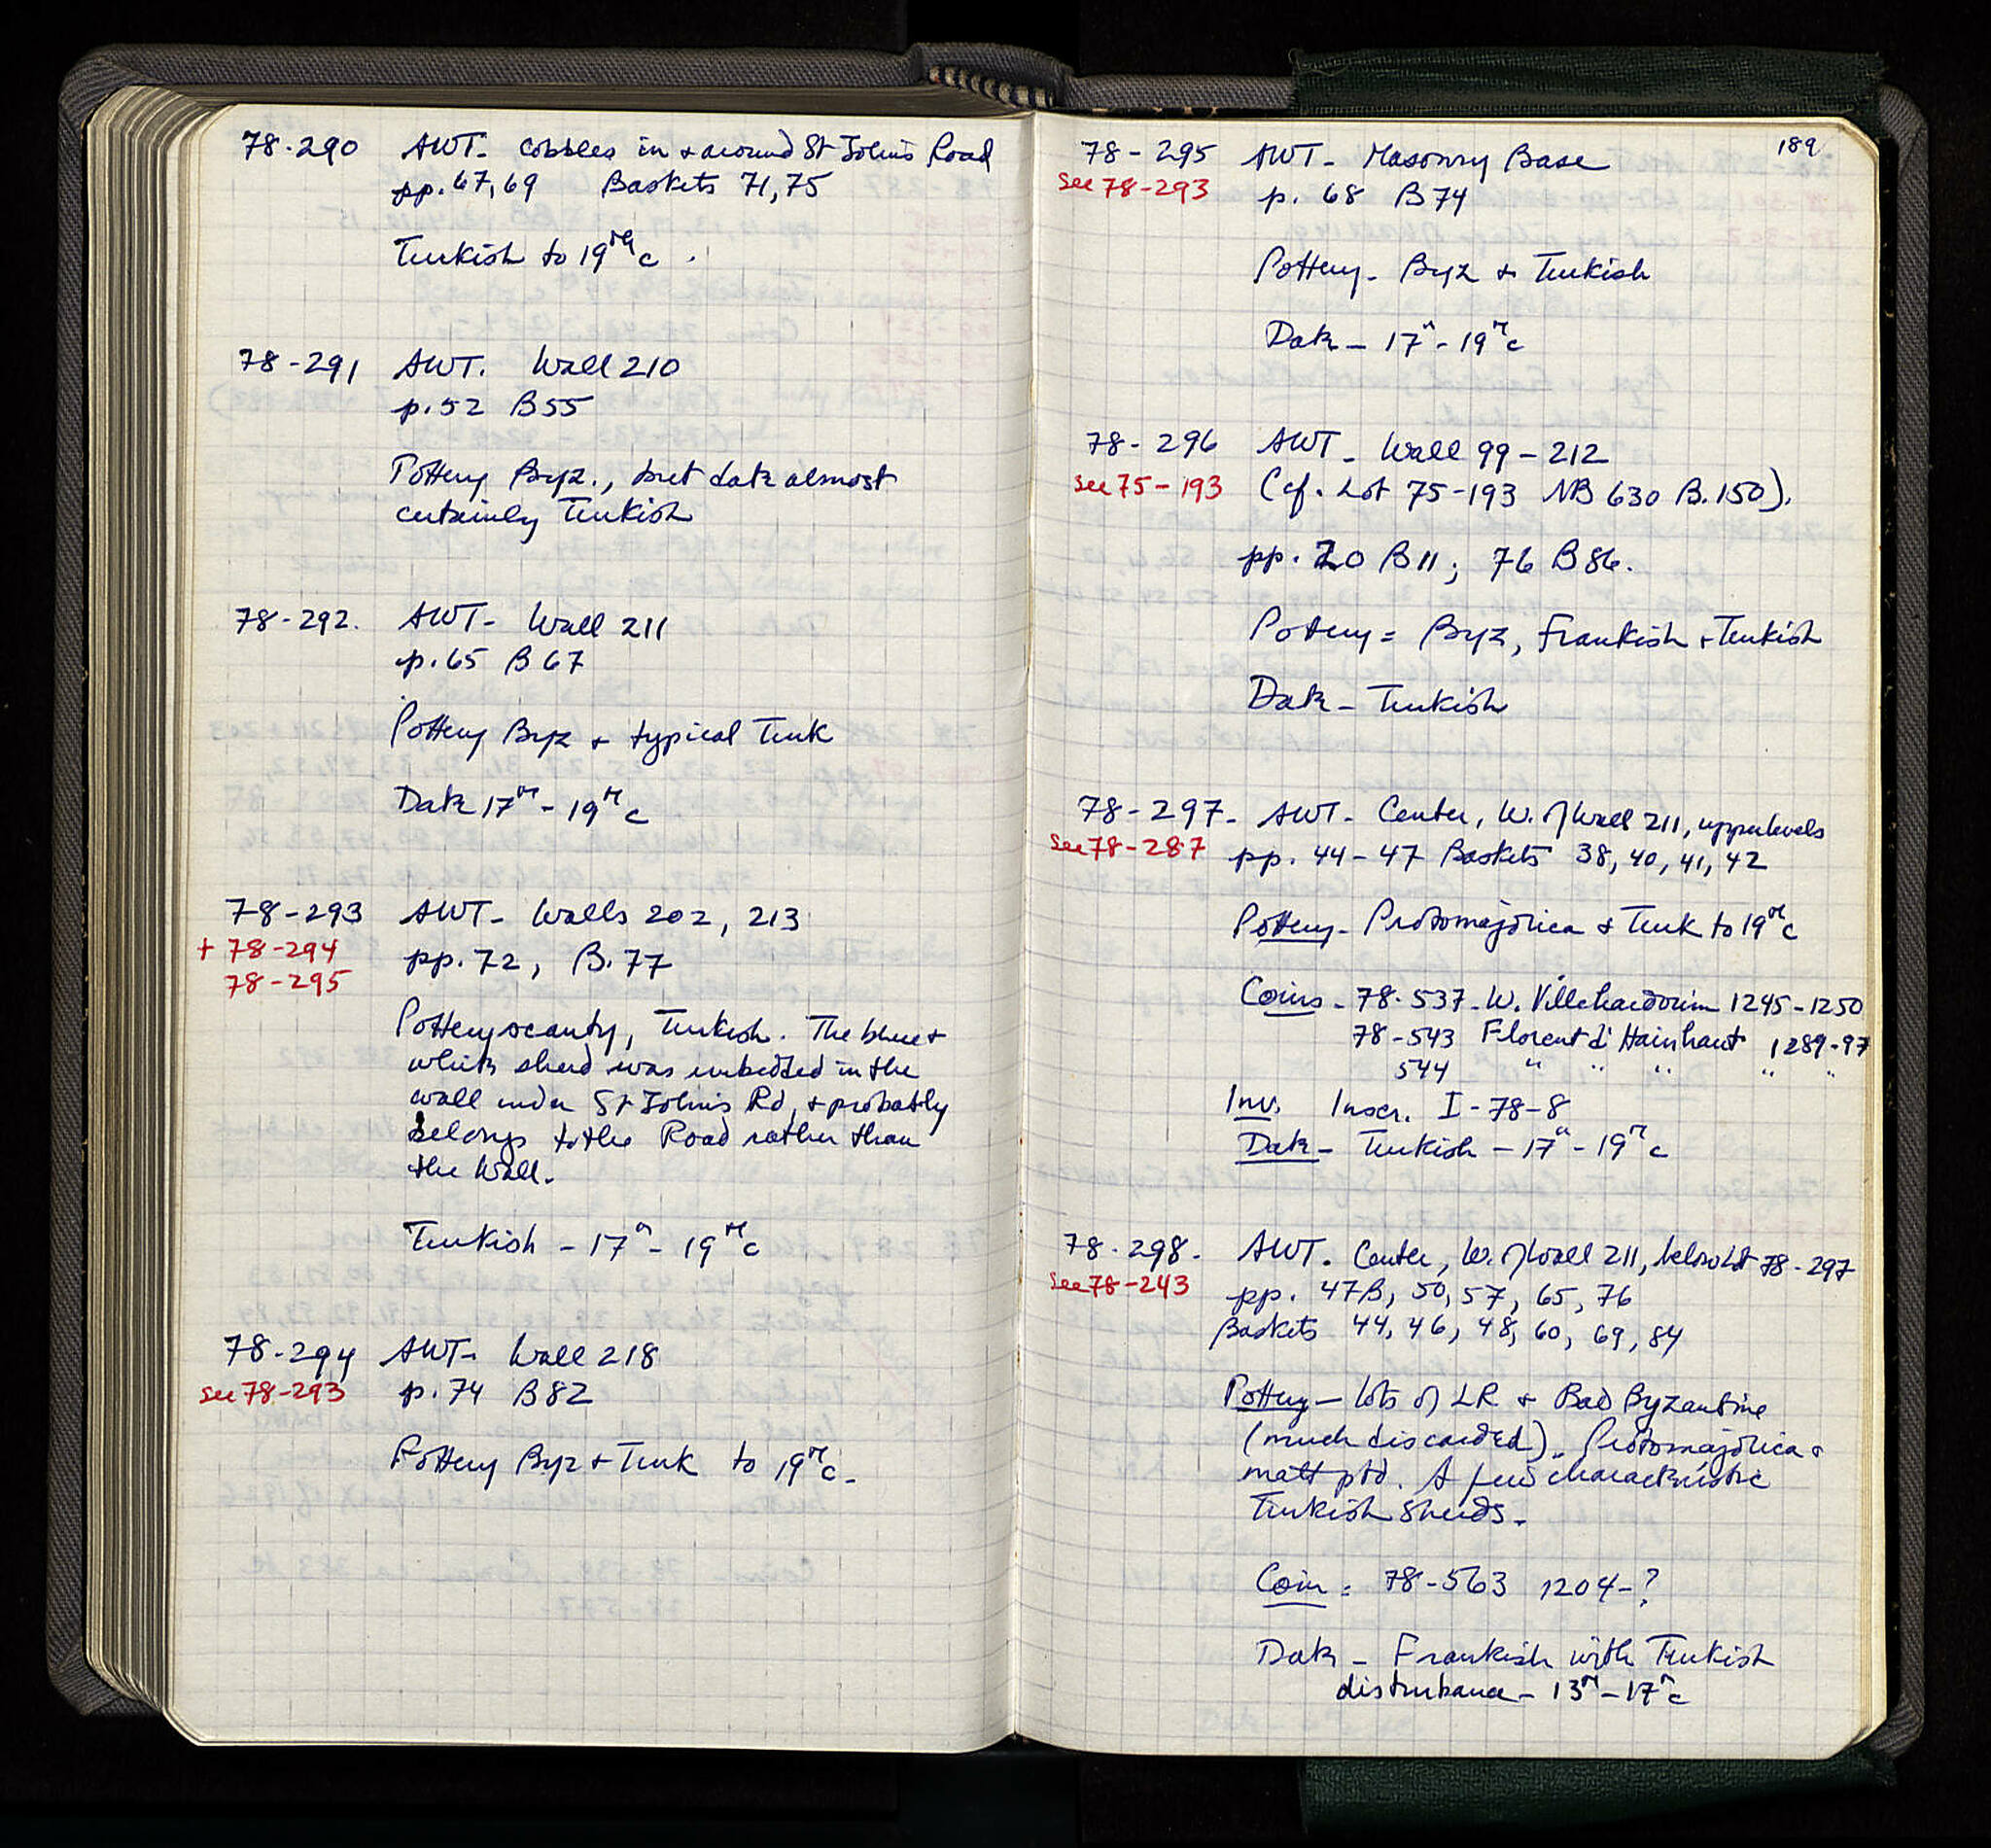 78-290 AWT- Cobbles in + around St John's Road
pp. 67, 69 Baskets 71, 75
Turkish to 19th c.
78-291 AWT. Wall 210
p. 52 B55
Pottery Byz., but date almost
certainly Turkish
78-292. AWT- Wall 211
p. 65 B 67
Pottery Byz + typical Turk
Date 17th - 19th c
78-293 AWT- Walls 202, 213
+ 78-294 pp. 72, B. 77
78-295
Pottery scanty, Turkish. The blue +
white sherd was imbedded in the
wall under St John's Rd, + probably
belongs to the Road rather than
the Wall.
Turkish - 17th - 19th c
78-294 AWT- Wall 218
see 78-293 p. 74 B82
Pottery Byz + Turk to 19th c-
189
78-295 AWT- Masonry Base
see 78-293 p. 68 B74
Pottery- Byz + Turkish
Date - 17th - 19th c
78-296 AWT- Wall 99-212
see 75-193 (cf. Lot 75-193 NB 630 B.150).
pp. 20 B11; 76 B86.
Pottery = Byz, Frankish + Turkish
Date - Turkish
78-297- AWT- Center, W. of Wall 211, upper levels
see 78-287 pp. 44-47 Baskets 38, 40, 41, 42
Pottery- Protomajolica + Turk to 19th c
Coins - 78-537- W. Villehardouin 1245-1250
78-543 Florent d'Hainhaut 1289-97
544 " " " " "
Inv. Inscr. I-78-8
Date - Turkish - 17th - 19th c
78-298- AWT. Center, W. of Wall 211, below Lot 78-297
see 78-243 pp. 47B, 50, 57, 65, 76
Baskets 44, 46, 48, 60, 69, 84
Pottery - lots of LR + Bad Byzantine
(much discarded). Protomajolica +
matt ptd. A few characteristic
Turkish sherds-
Coin = 78-563 1204-?
Date - Frankish with Turkish
disturbance - 13th - 17th c